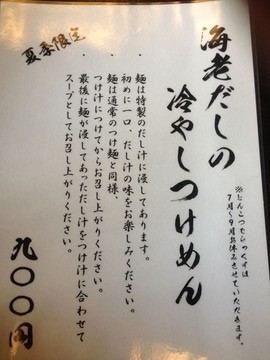 海老だしの
冷やしつけめん
※とんこつでらっくすは
7月〜9月お休みさせていただきます。
夏季限定
・麺は特製のだし汁に浸してあります。
初めに一口、だし汁の味をお楽しみください。
・麺は通常のつけ麺と同様、
つけ汁につけてからお召し上がりください。
・最後に麺が浸してあっただし汁をつけ汁に合わせて
スープとしてお召し上がりください。
九〇〇円